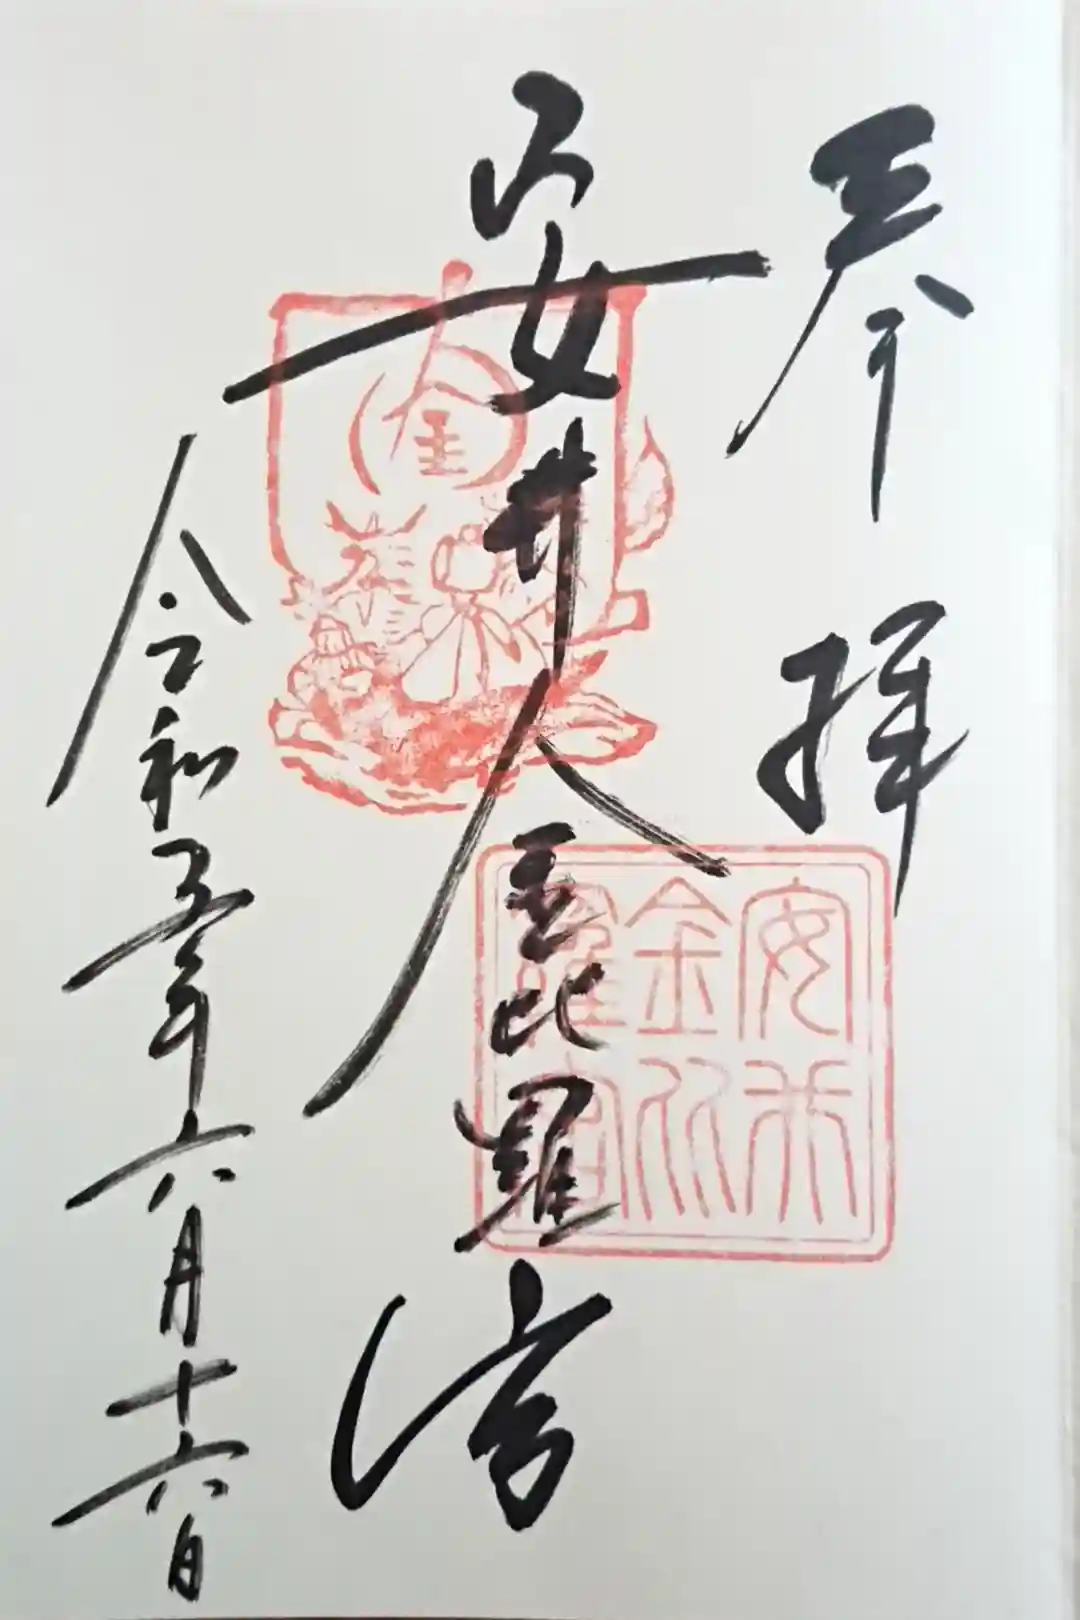 奉拝
安井金比羅宮
令和五年六月十六日
金
安井
金比
羅宮